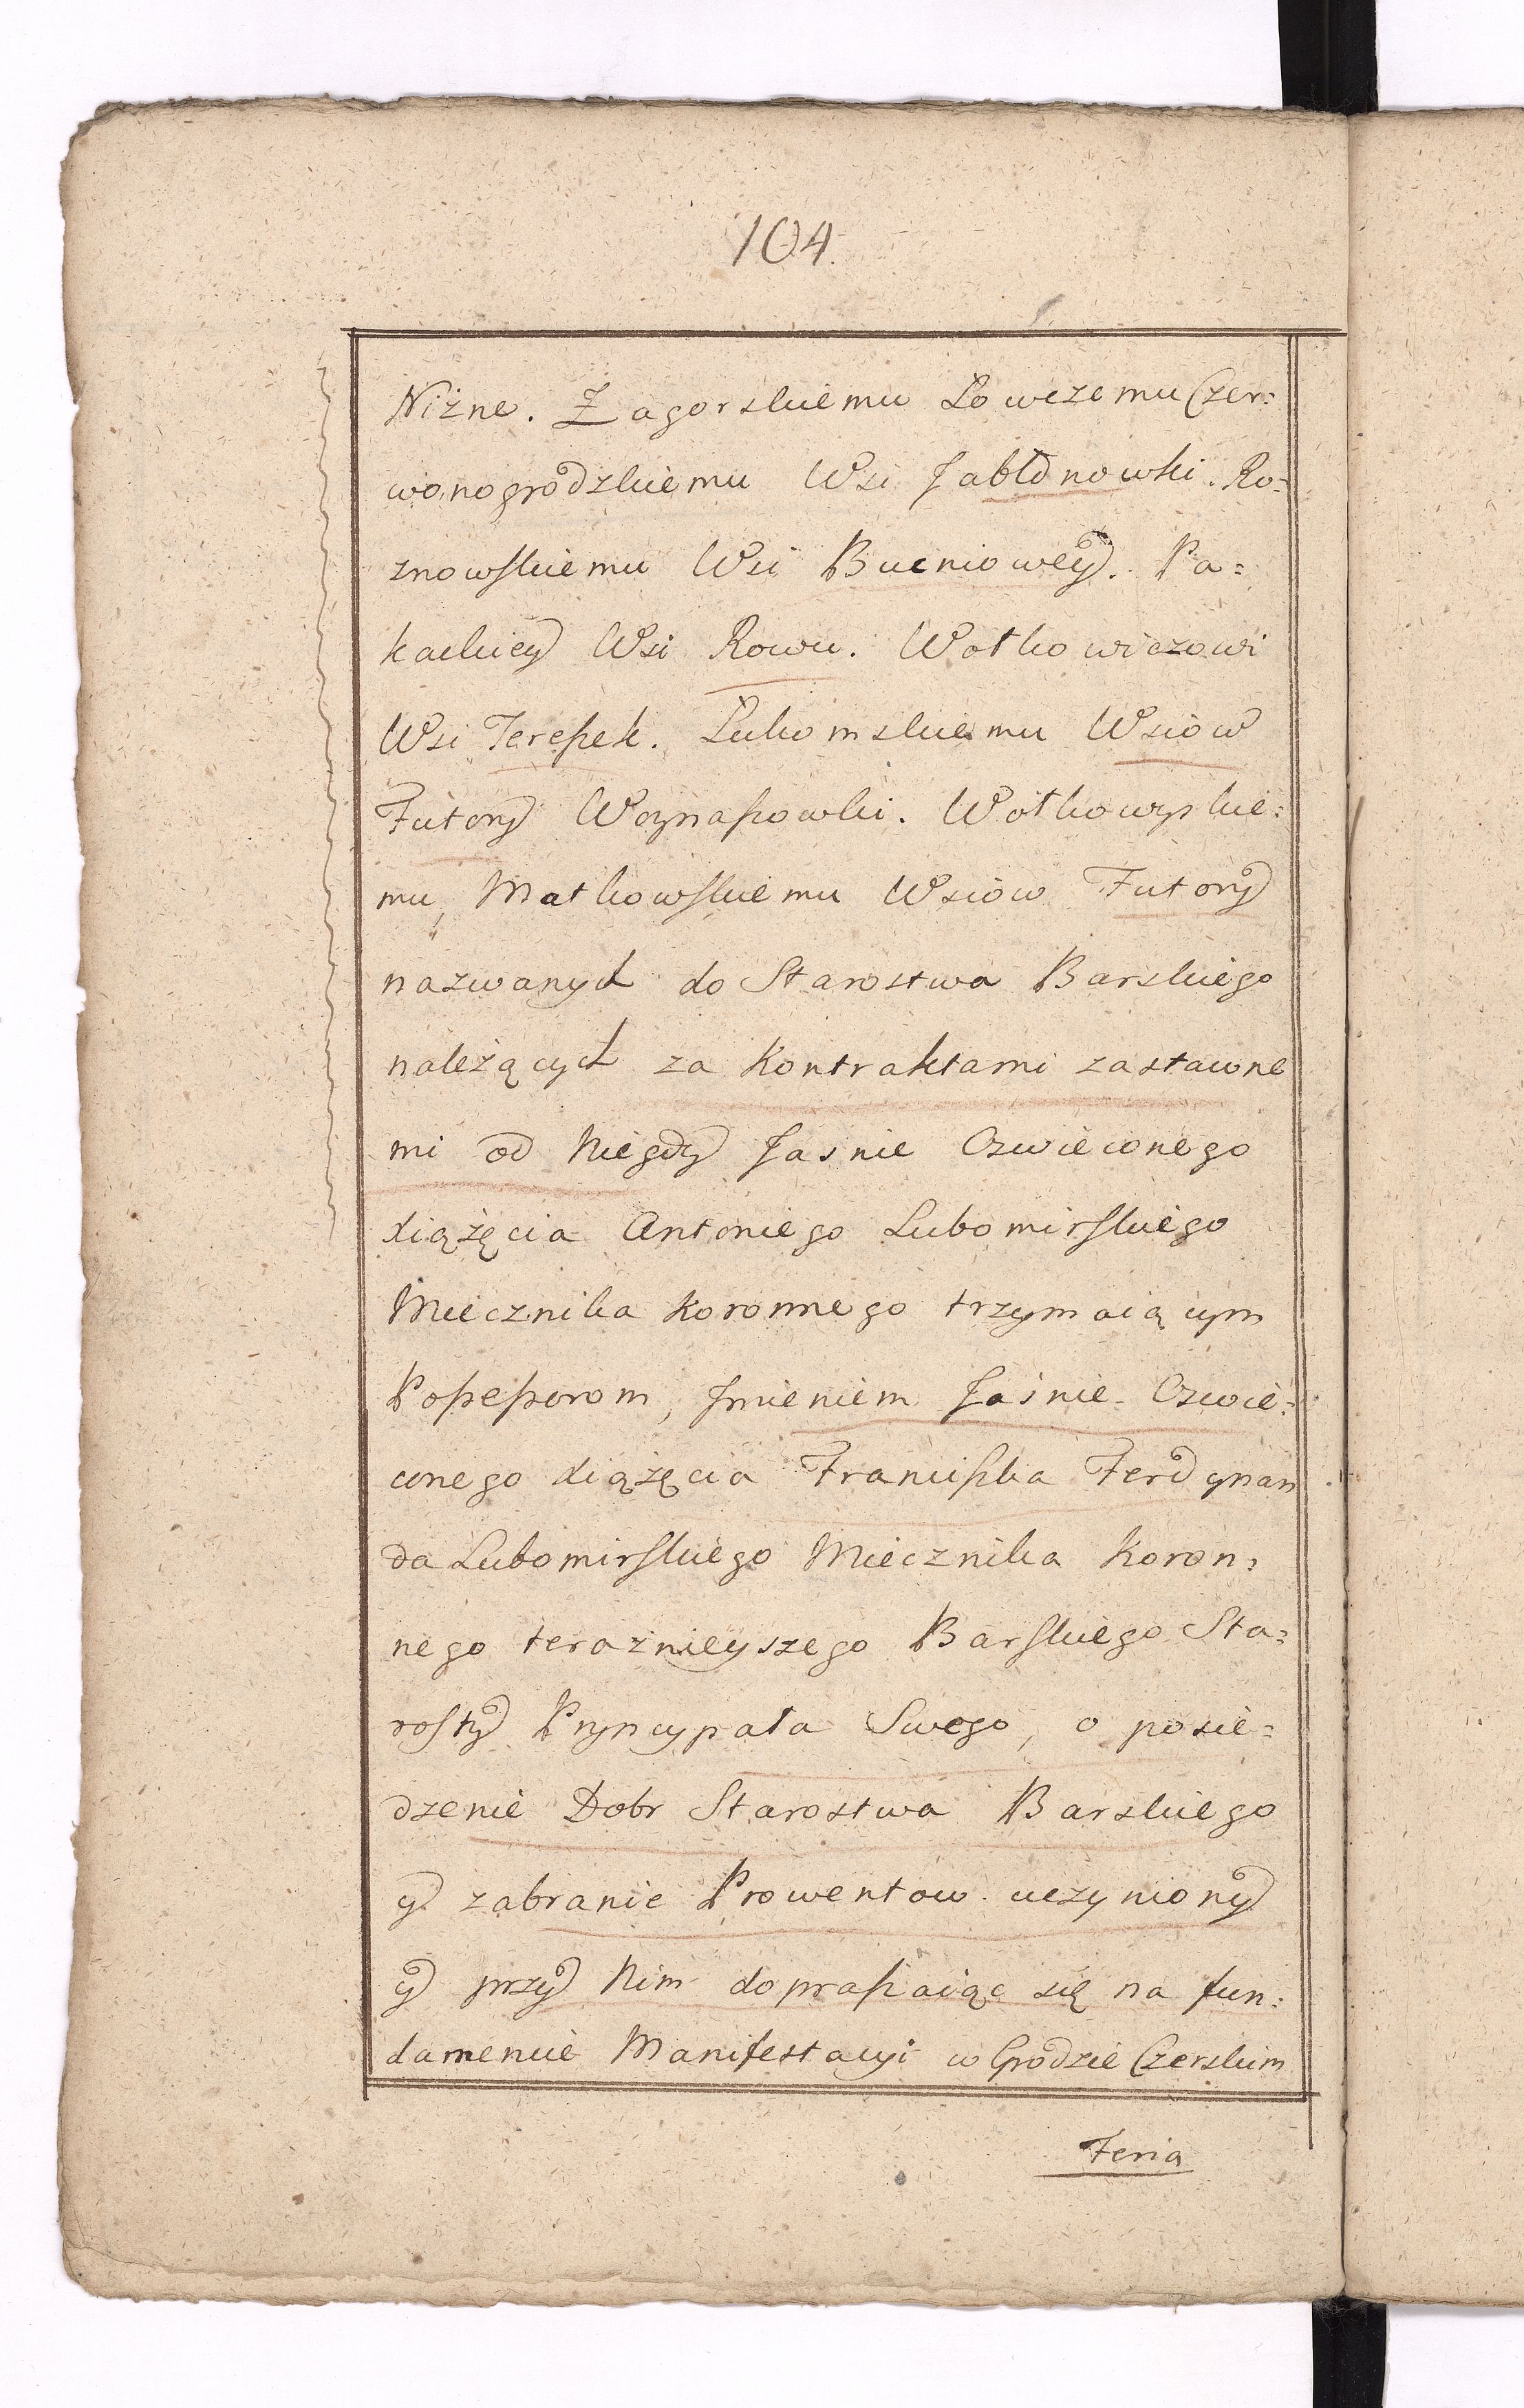 104.
Niżne. Zagorskiemu Łowczemu Czer=
wonogrodzkiemu Wsi Jabłonowki. Ro=
znowskiemu Wsi Bucniowey. Pa=
kackiey Wsi Rowu. Wołkowiczowi
Wsi Tereszek. Łukomskiemu Wsiow
Futory Woynaszowki. Wołkowyskie=
mu, Małkowskiemu Wsiow Futory
nazwanych do Starostwa Barskiego
należących za Kontraktami zastawne
mi od Niegdy Jasnie Oswieconego
Xiążęcia Antoniego Lubomirskiego
Miecznika Koronnego trzymaiącym
Possessorom, Jmieniem Jaśnie Oswie=
conego Xiążęcia Franciszka Ferdynan
da Lubomirskiego Miecznika Koron=
nego teraźnieyszego Barskiego Sta=
rosty Pryncypała Swego, o posie=
dzenie Dobr Starostwa Barskiego
y zabranie Prowentow uczyniony
y przy Nim dopraszaiąc się na fun=
damencie Manifestacyi w Grodzie Czerskim
Feria